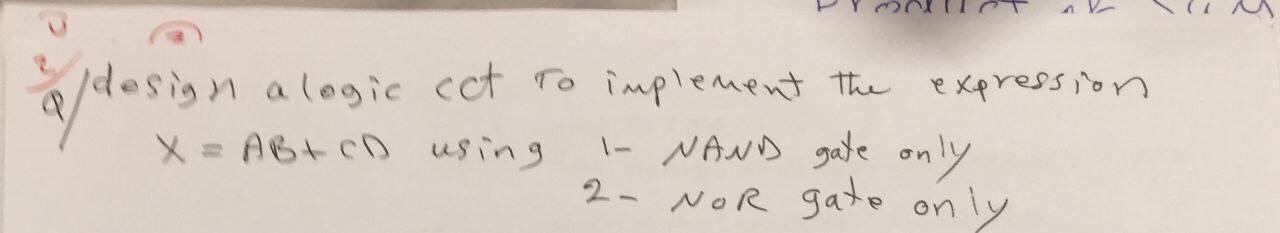 Q/ design a logic cct To implement the expression
X = AB + CD using 1- NAND gate only
2- NOR gate only